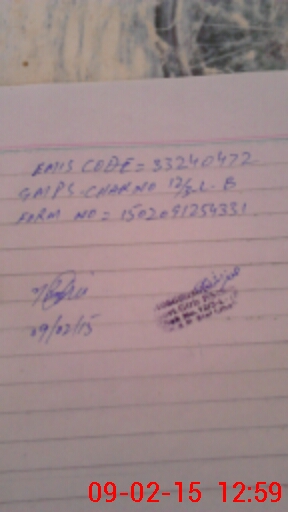 EMIS CODE = 33240472
GMPS-CHAK NO 12/3-L-B
FORM NO = 1502091259331
09/02/15
09-02-15 12:59